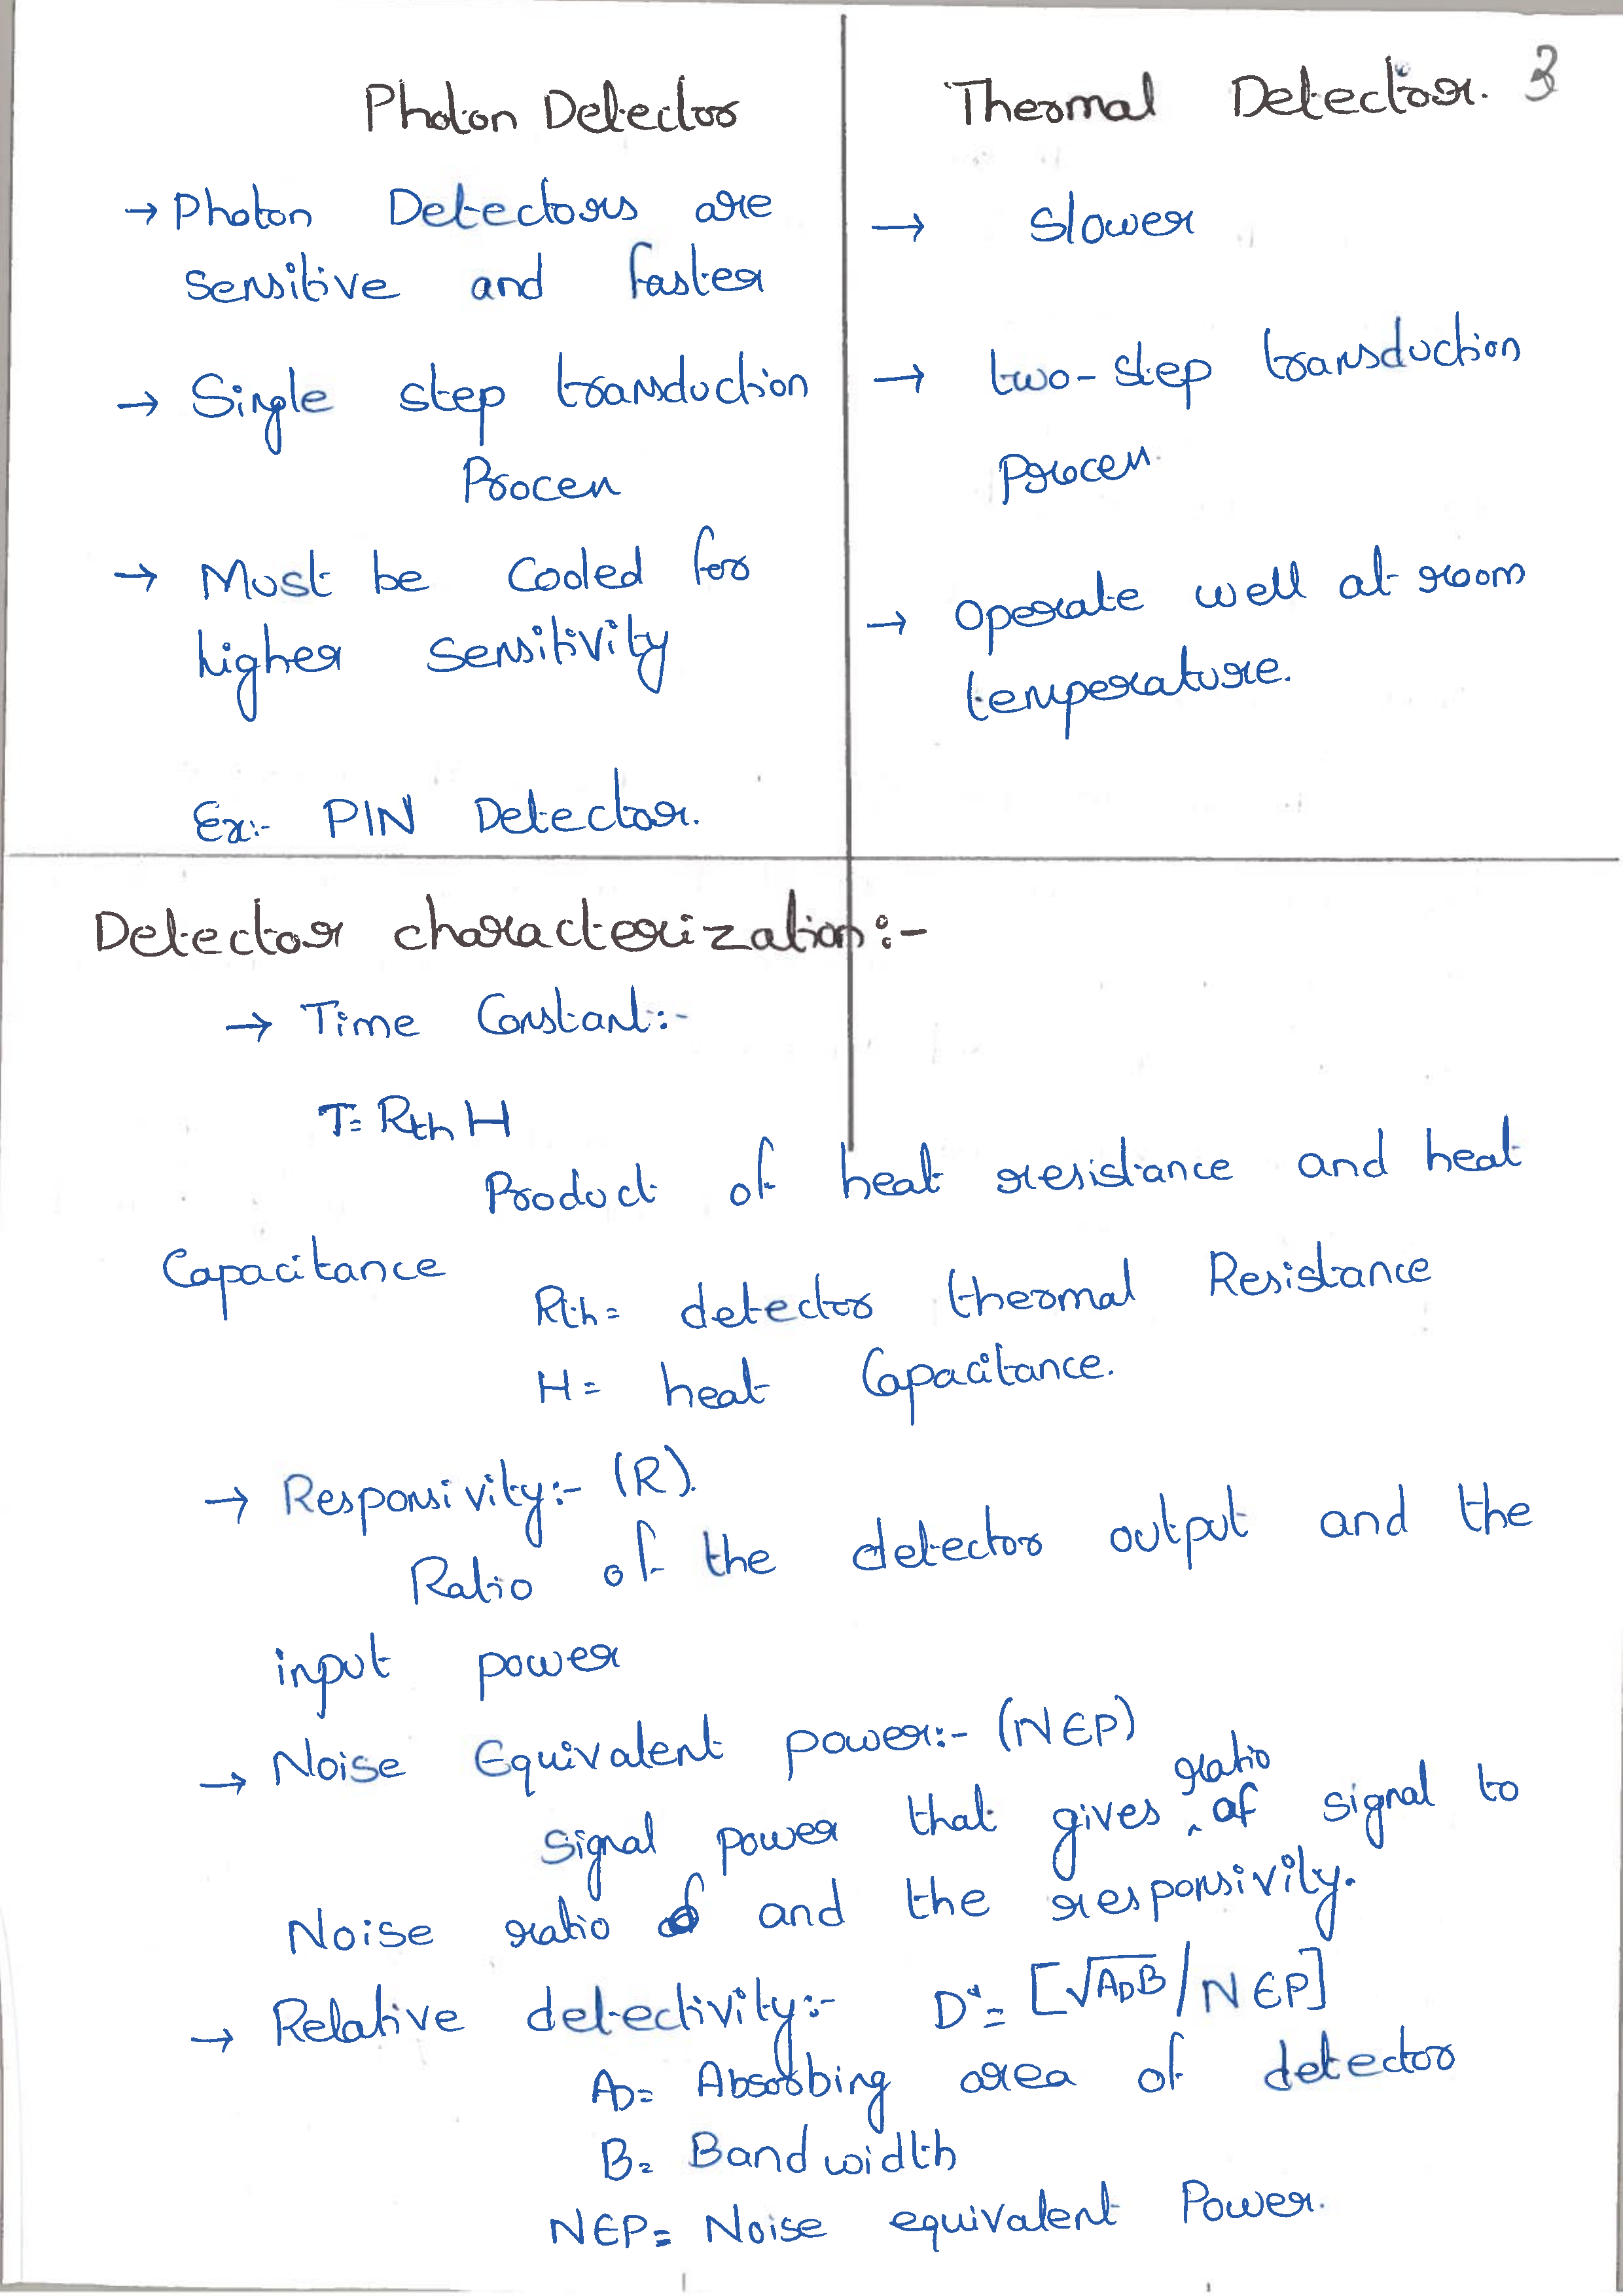 Photon Detector
→ Photon Detectors are
sensitive and faster
→ Single step transduction
Process
→ Must be cooled for
higher sensitivity
Ex:- PIN Detector.
Thermal Detector. 3
→ slower
→ two-step transduction
process.
→ operate well at room
temperature.
Detector characterization:-
→ Time Constant:-
T= Rth H
Product of heat resistance and heat
Capacitance
Rth= detector thermal Resistance
H= heat Capacitance.
→ Responsivity:- (R).
Ratio of the detector output and the
input power
→ Noise Equivalent power:- (NEP)
signal power that gives ratio of signal to
Noise ratio and the responsivity.
→ Relative detectivity:- D*= [√ADB/NEP]
AD= Absorbing area of detector
B= Bandwidth
NEP= Noise equivalent Power.